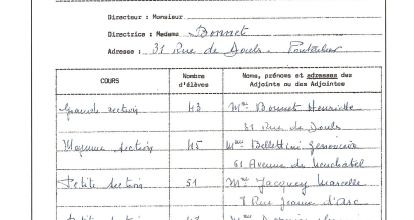 Directeur : Monsieur
Directrice : Madame Bonnet
Adresse : 31 Rue de Douls. Pontarlier
COURS Nombre d'élèves Noms, prénoms et adresses des Adjoints ou des Adjointes
Grande section 43 Mme Bonnet Henriette
31 Rue de Douls.
Moyenne section 45 Mme Bellettini Geneviève
61 Avenue de Neuchâtel
Petite section 51 Mme Jacquey Marcelle
7 Rue Jeanne d'Arc